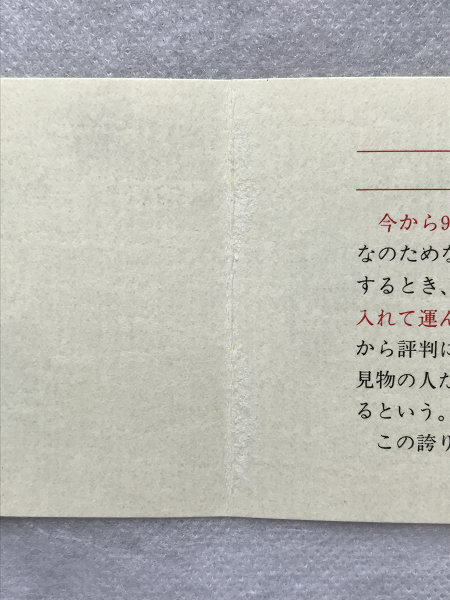 今から9
なのためな
するとき、
入れて運ん
から評判に
見物の人た
るという。
この誇り